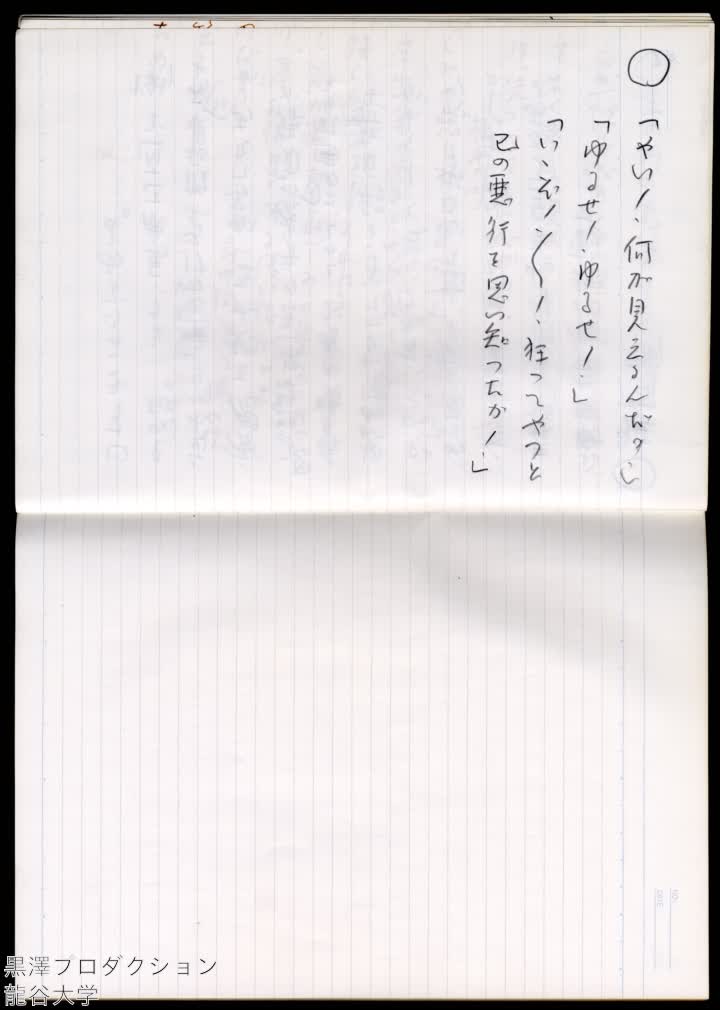 ○
「やい!、何が見えるんだ?」
「ゆるせ!、ゆるせ!、」
「いゝぞ!ソノ〳〵!、狂ってやっと
己の悪行を思い知ったか!、」
黒澤プロダクション
龍谷大学